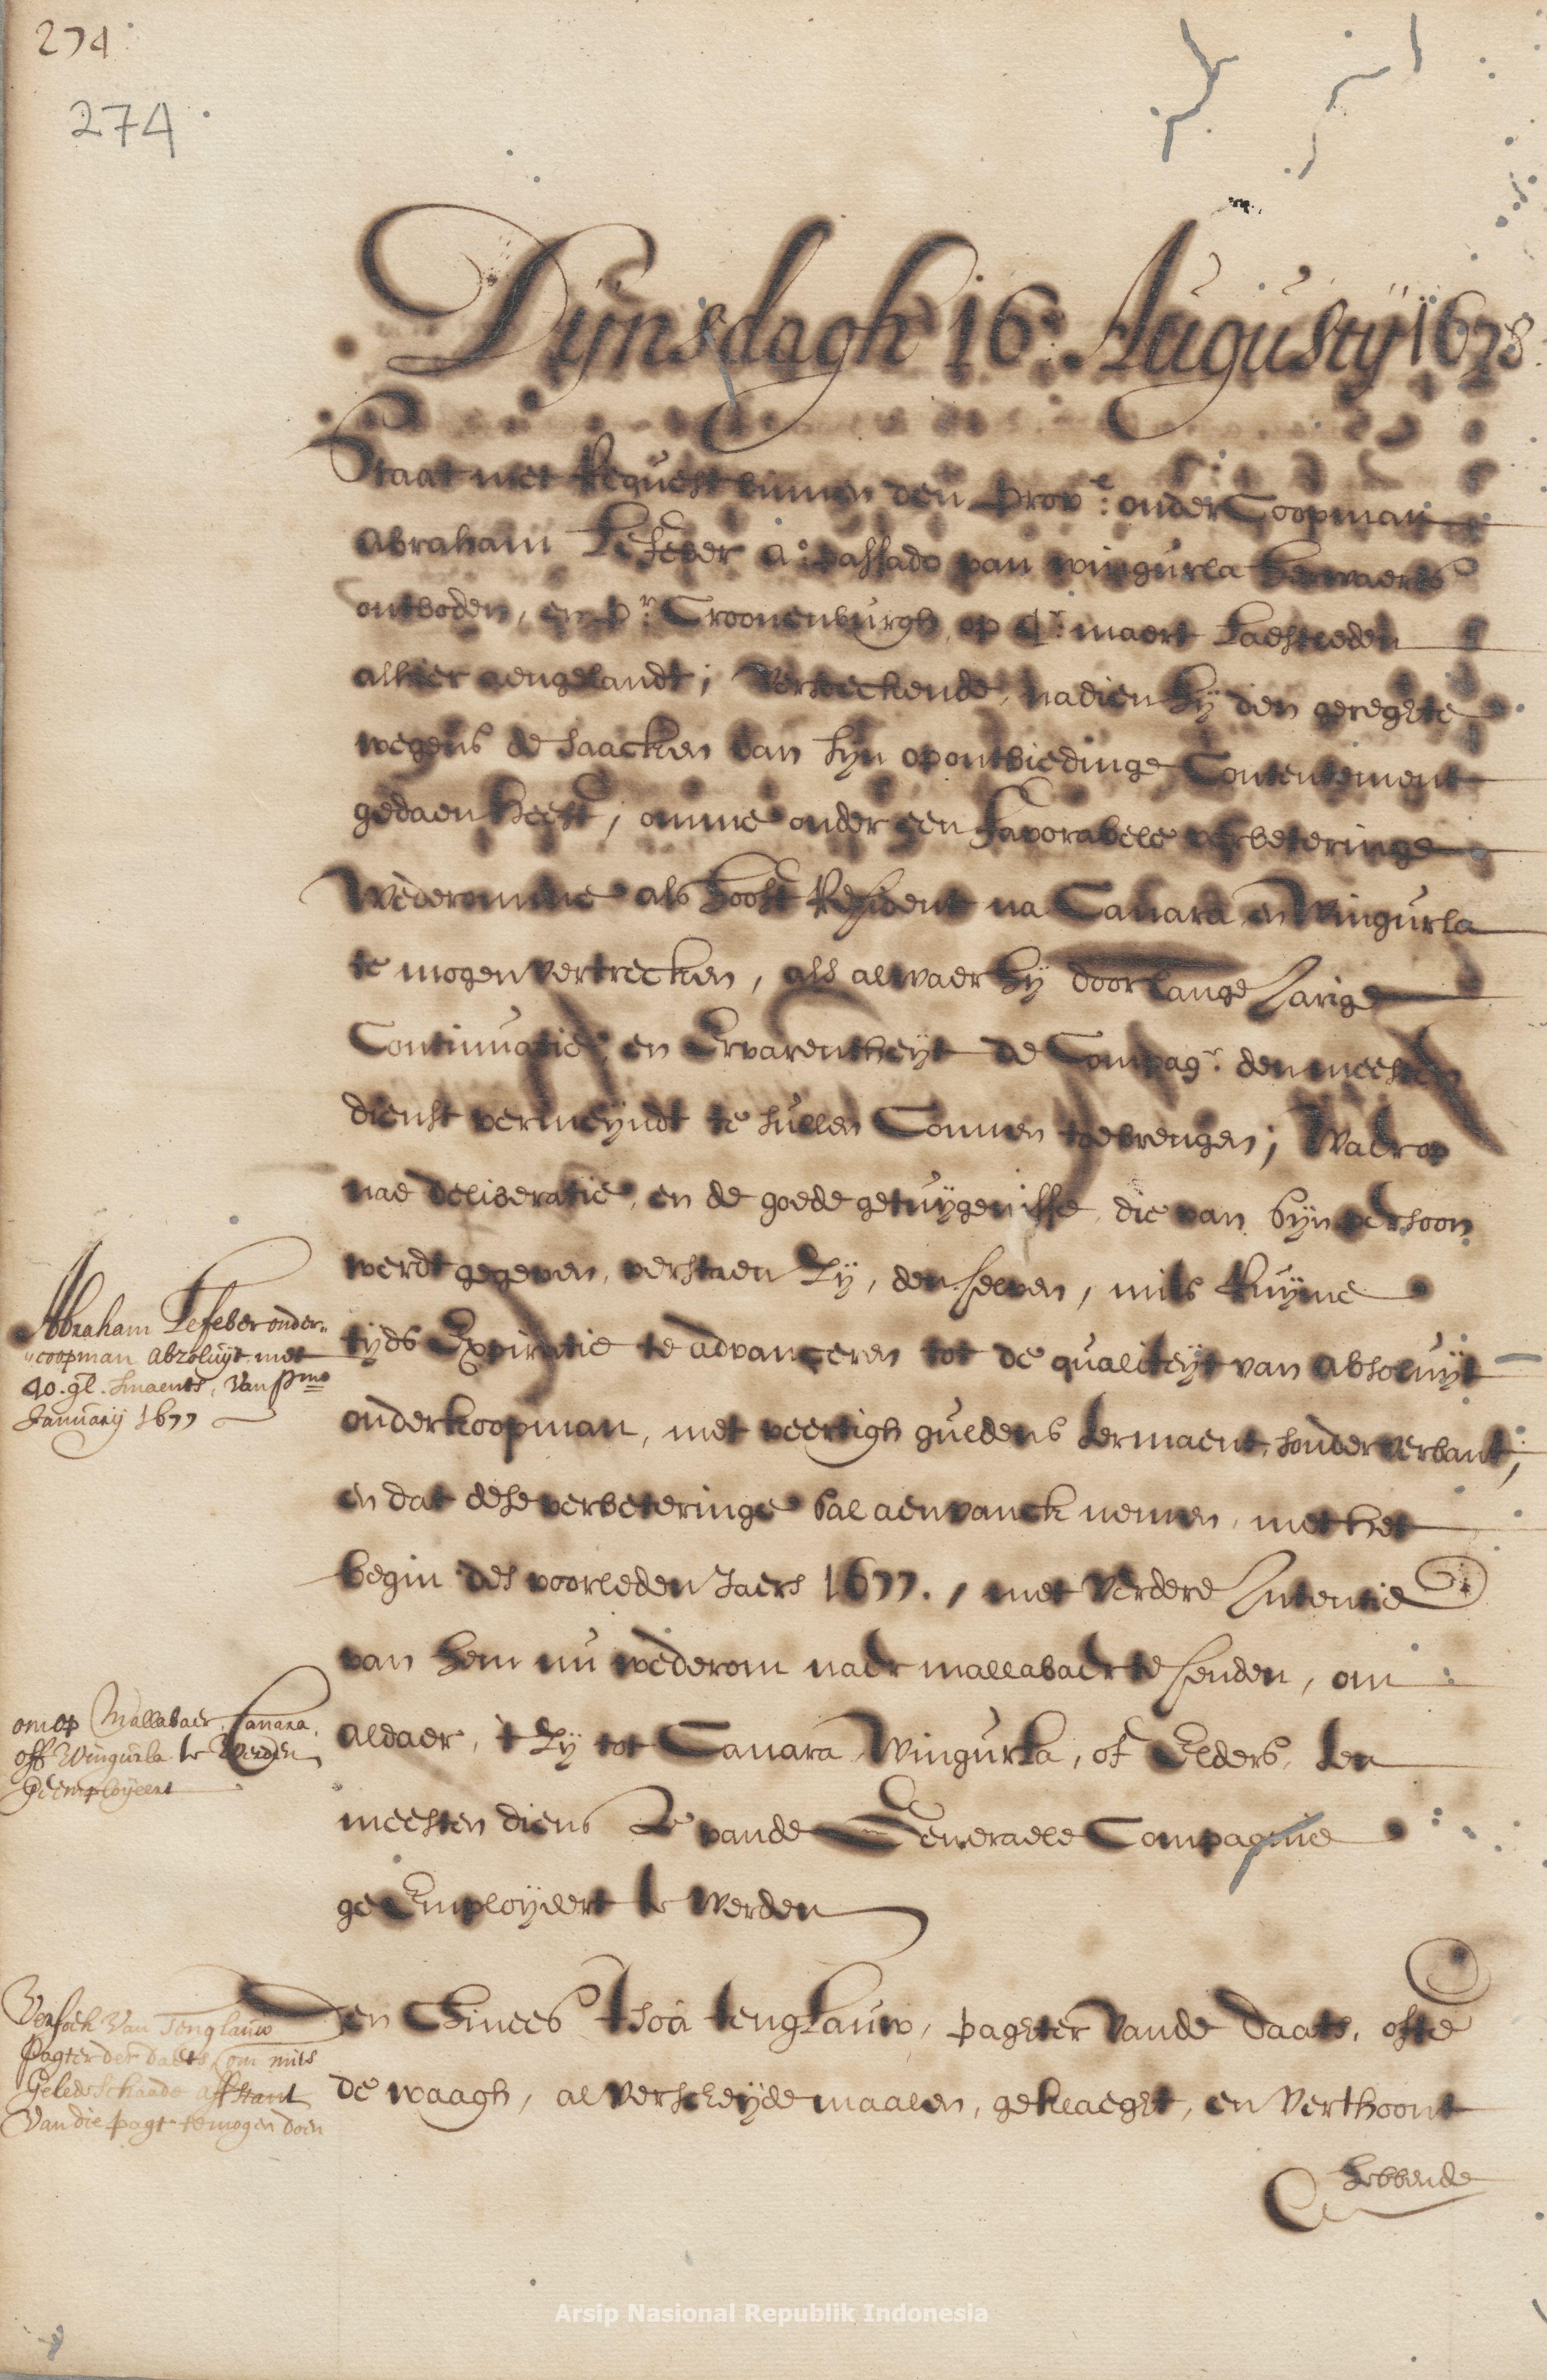 274
274
Dijnsdagh 16.e Augustij 1678
Staat met Request binnen den prov:e onder Coopman
Abraham Lefeber a:o passado van wingurla herwaerts
ontboden, en p:r Croonenburgh, op 4:e maert Laestleden
alhier aengelandt; versoeckende, nadien hij den geregte
wegens de saacken van sijn opontbiedinge Contentement
gedaen heeft, omme onder een favorabele verbeteringe
Wederomme als hooft Resident na Canara en Wingurla
te mogen vertrecken, als alwaer hij door lange Jarige
Continuatie, en Ervarentheijt de Compag:e den meesten
dienst vermeijndt te sullen Connen toebrengen; Waerop
nae deliberatie, en de goede getuijgenisse, die van sijn persoon
werdt gegeven, verstaen zij, den selven, mits Ruijme
tijds Expiratie te advanceren tot de qualiteijt van absoluijt
onderkoopman, met veertigh guldens ter maent, sonder verbant;
en dat dese verbeteringe sal aenvanck nemen, met het
begin des voorleden Jaers 1677., met verdere Intentie
van hem nu wederom naer mallabaer te senden, om
aldaer, 't zij tot Canara, Wingurla, of Elders, ten
meesten diens vande Generaele Compagnie
geEmploijeert te werden
Abraham Lefeber onder"
"coopman absoluijt met
40. gl. smaents, van pmo
Januarij 1677
om op Mallabaer, Canara,
off Wingurla te werden
geemploijeert
Den Chinees tsoa tenglauw, pagter vande daats, ofte
de waagh, al verscheijde maalen, geklaegt, en verthoont
Versoek van Tenglauw
Pagter der daets, om mits
Geleden Schaade affstant
van die pagt te mogen doen
hebbende
Arsip Nasional Republik Indonesia